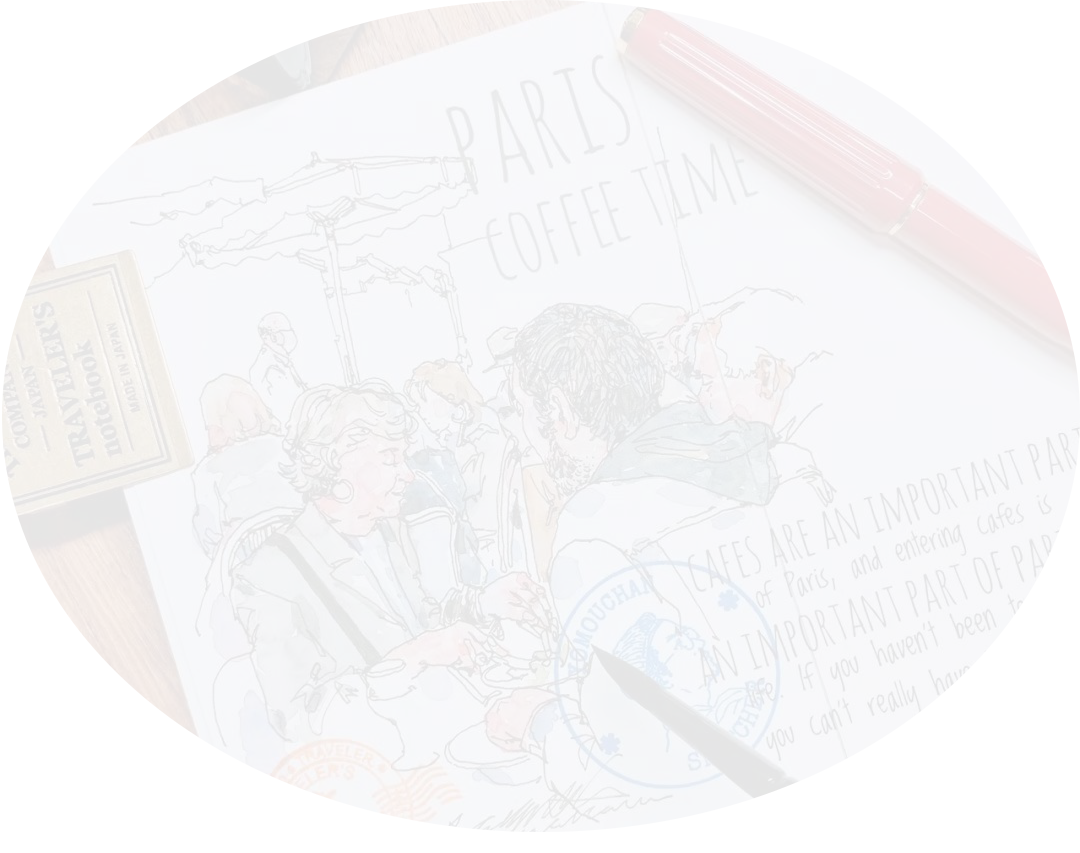 PARIS
COFFEE TIME
JAPAN
TRAVELER'S
notebook
MADE IN JAPAN
CAFES ARE AN IMPORTANT PART
of Paris, and entering cafes is
AN IMPORTANT PART OF
If you haven't been
you can't really
TRAVELER